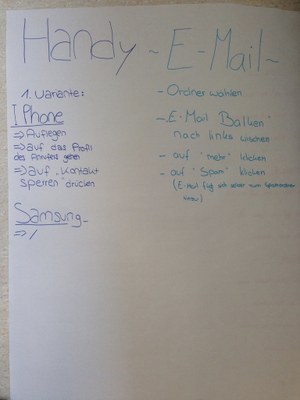 Handy
1. Variante:
I Phone
=> Auflegen
=> auf das Profil
des Anrufers gehen
=> auf "Kontakt
sperren" drücken
Samsung-
=> /
~ E-Mail ~
- Ordner wählen
- E-Mail Balken
nach links wischen
- auf "mehr" klicken
- auf "Spam" klicken
(E-Mail fügt sich selber zum